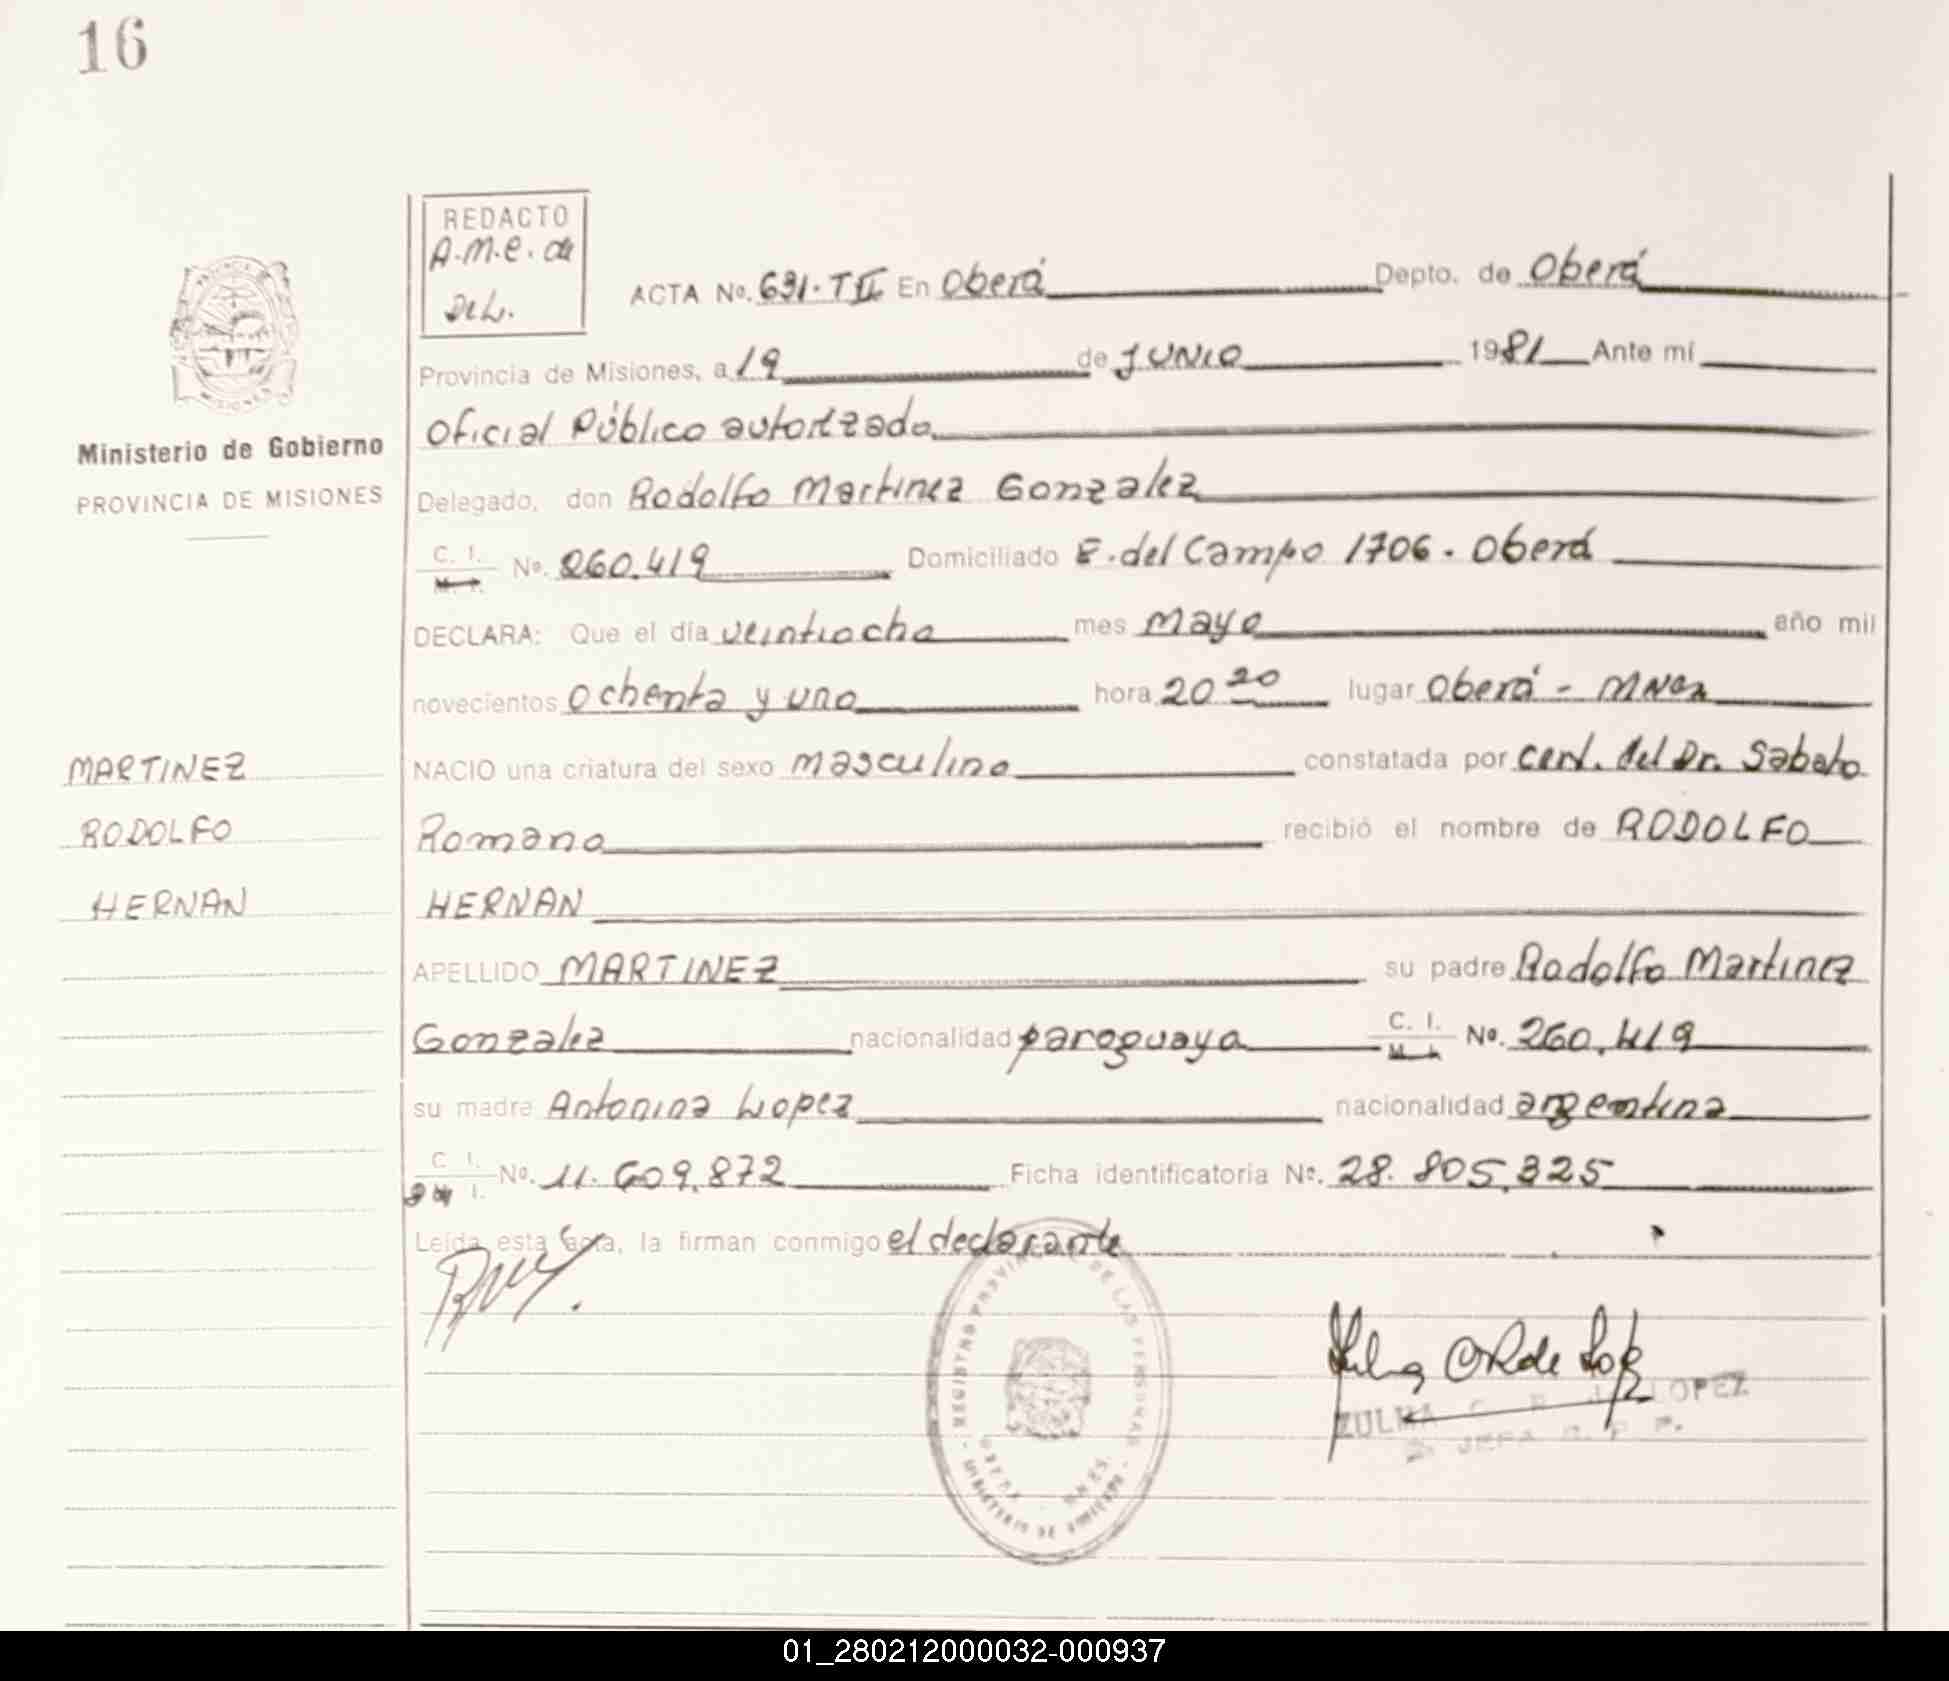 16
REDACTO
A.M.E. de
De L.
ACTA No. 631. T II En Oberá Depto. de Oberá
Provincia de Misiones, a 19 de JUNIO 1981 Ante mí
Oficial Público autorizado
Delegado, don Rodolfo Martinez Gonzalez
C. I. No. 260.419 Domiciliado E. del Campo 1706. Oberá
M. I.
DECLARA: Que el día veintiocho mes mayo año mil
novecientos ochenta y uno hora 20 20 lugar Oberá - MNes
NACIO una criatura del sexo masculino constatada por cert. del Dr. Sabato
Romano recibió el nombre de RODOLFO
HERNAN
APELLIDO MARTINEZ su padre Rodolfo Martinez
Gonzalez nacionalidad paraguaya C. I. No. 260.419
M. I.
su madre Antonina Lopez nacionalidad argentina
C. I. No. 11.609.872 Ficha identificatoria No. 28.805.325
Leída esta acta, la firman conmigo el declarante
PROVINCIA DE
MISIONES
Ministerio de Gobierno
PROVINCIA DE MISIONES
MARTINEZ
RODOLFO
HERNAN
REGISTRO PROVINCIAL DE LAS PERSONAS
MINISTERIO DE GOBIERNO
ZULMA LOPEZ
JEFA R. P. P.
01_280212000032-000937